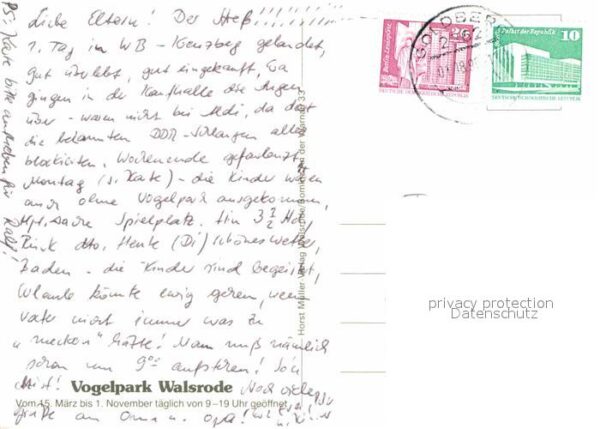 Liebe Eltern! Der Streß!!!!!!!!
1. Tag im WB - Kreuzberg gelandet,
gut überlebt, gut eingekauft, Da
gingen in der Kaufhalle die Augen
über - waren nicht bei Aldi, da dort
die bekannten DDR-Schlangen alles
blockierten. Wochenende gefaulenzt
Montag (s. Karte) - die Kinder wären
auch ohne Vogelpark ausgekommen,
Hpt.sache Spielplatz. Hin 3 1/2 Std,
Rück dto. Heute (Di) schönes Wetter,
Baden - die Kinder sind begeistert,
Urlaub könnte ewig gehen, wenn
Vater nicht immer was zu
"meckern" hätte! Man muß nämlich
schon um 9⁰⁰ aufstehen! So'n
Mist!
Vogelpark Walsrode
Noch
Vom 15. März bis 1. November täglich von 9-19 Uhr geöffnet
Grüße an Oma u. Opa!
PS: Karte bitte aufheben für Ralf!
Horst Müller Verlag Walsrode/Bomlitz, An der Warnau 33
Berlin, Leninplatz
20
DEUTSCHE DEMOKRATISCHE REPUBLIK
GOLDBERG
Palast der Republik
10
DEUTSCHE DEMOKRATISCHE REPUBLIK
privacy protection
Datenschutz